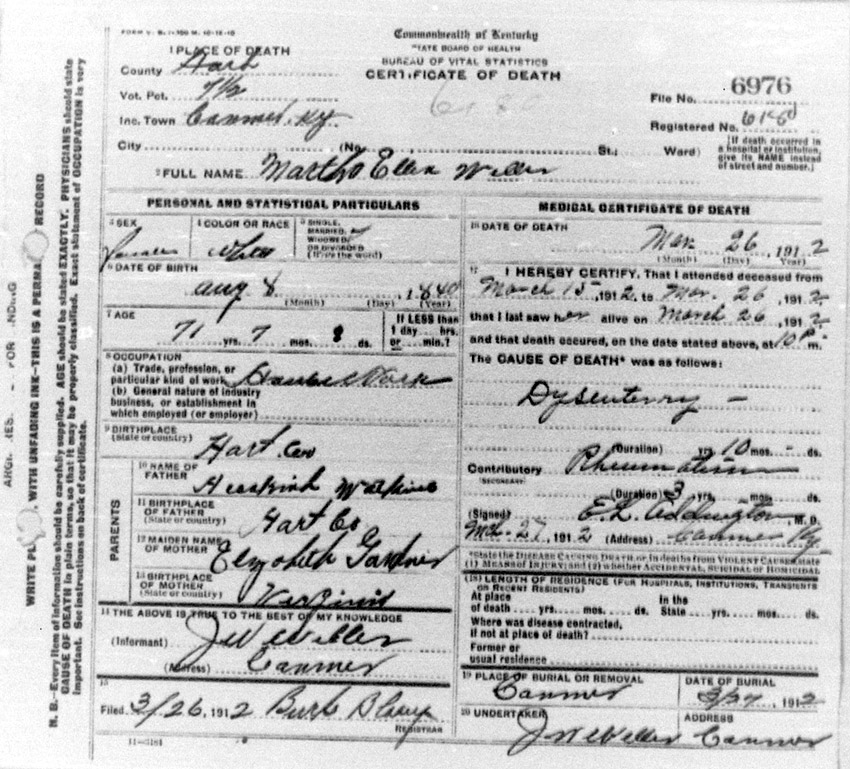 FORM V. S. 1-350 M. 10-18-10
Commonwealth of Kentucky
STATE BOARD OF HEALTH
BUREAU OF VITAL STATISTICS
CERTIFICATE OF DEATH
1 PLACE OF DEATH
County Hart
Vot. Pct. 7 1/2
Inc. Town Canmer, Ky.
City (No. St.; Ward)
File No. 6976
Registered No.
[If death occurred in a hospital or institution, give its NAME instead of street and number.]
2 FULL NAME Martha Ellen Weller
PERSONAL AND STATISTICAL PARTICULARS
3 SEX Female
4 COLOR OR RACE White
5 SINGLE, MARRIED, WIDOWED OR DIVORCED (Write the word)
6 DATE OF BIRTH
Aug 8 1840
(Month) (Day) (Year)
7 AGE
71 yrs. 7 mos. 8 ds.
If LESS than 1 day hrs. or min.?
8 OCCUPATION
(a) Trade, profession, or particular kind of work House Work
(b) General nature of industry business, or establishment in which employed (or employer)
9 BIRTHPLACE
(State or country) Hart Co
PARENTS
10 NAME OF FATHER Hezekiah Watkins
11 BIRTHPLACE OF FATHER (State or country) Hart Co
12 MAIDEN NAME OF MOTHER Elizabeth Gardner
13 BIRTHPLACE OF MOTHER (State or country) Virginia
14 THE ABOVE IS TRUE TO THE BEST OF MY KNOWLEDGE
(Informant) J W Weller
(Address) Canmer
15
Filed 3/26, 1912 Burk
REGISTRAR
11-3181
MEDICAL CERTIFICATE OF DEATH
16 DATE OF DEATH
Mar 26, 1912
(Month) (Day) (Year)
17 I HEREBY CERTIFY, That I attended deceased from
March 15, 1912, to Mar. 26, 1912
that I last saw her alive on March 26, 1912
and that death occured, on the date stated above, at 10 P m.
The CAUSE OF DEATH* was as follows:
Dysenterry -
(Duration) yrs. 10 mos. - ds.
Contributory Rheumatism
SECONDARY
(Duration) 3 yrs. mos. ds.
(Signed) E. L. Addington M. D.
Mch. 27, 1912 (Address) Canmer Ky.
*State the DISEASE CAUSING DEATH or in deaths from VIOLENT CAUSES, state (1) MEANS OF INJURY; and (2) whether ACCIDENTAL, SUICIDAL or HOMICIDAL
(18) LENGTH OF RESIDENCE (FOR HOSPITALS, INSTITUTIONS, TRANSIENTS OR RECENT RESIDENTS)
At place of death yrs. mos. ds. In the State yrs. mos. ds.
Where was disease contracted, if not at place of death?
Former or usual residence
19 PLACE OF BURIAL OR REMOVAL Canmer
DATE OF BURIAL 3/27, 1912
20 UNDERTAKER J W Weller
ADDRESS Canmer
N. B.—Every item of information should be carefully supplied. AGE should be stated EXACTLY. PHYSICIANS should state
CAUSE OF DEATH in plain terms, so that it may be properly classified. Exact statement of OCCUPATION is very
important. See instructions on back of certificate.
WRITE PL , WITH UNFADING INK—THIS IS A PERMA RECORD
ARGI RES FOR NDING